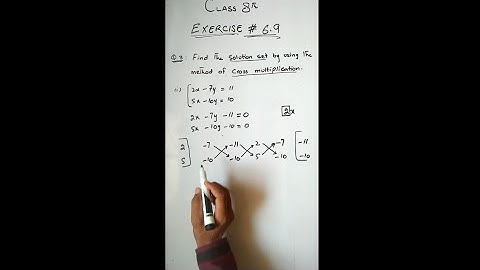 CLASS 8th
EXERCISE # 6.9
Q.3: Find the solution set by using the
method of cross multiplication.
(i) { 2x - 7y = 11
5x - 10y = 10
2x - 7y - 11 = 0
5x - 10y - 10 = 0
2 ] -7 -11 2 -7 [ -11
5 ] -10 -10 5 -10 [ -10